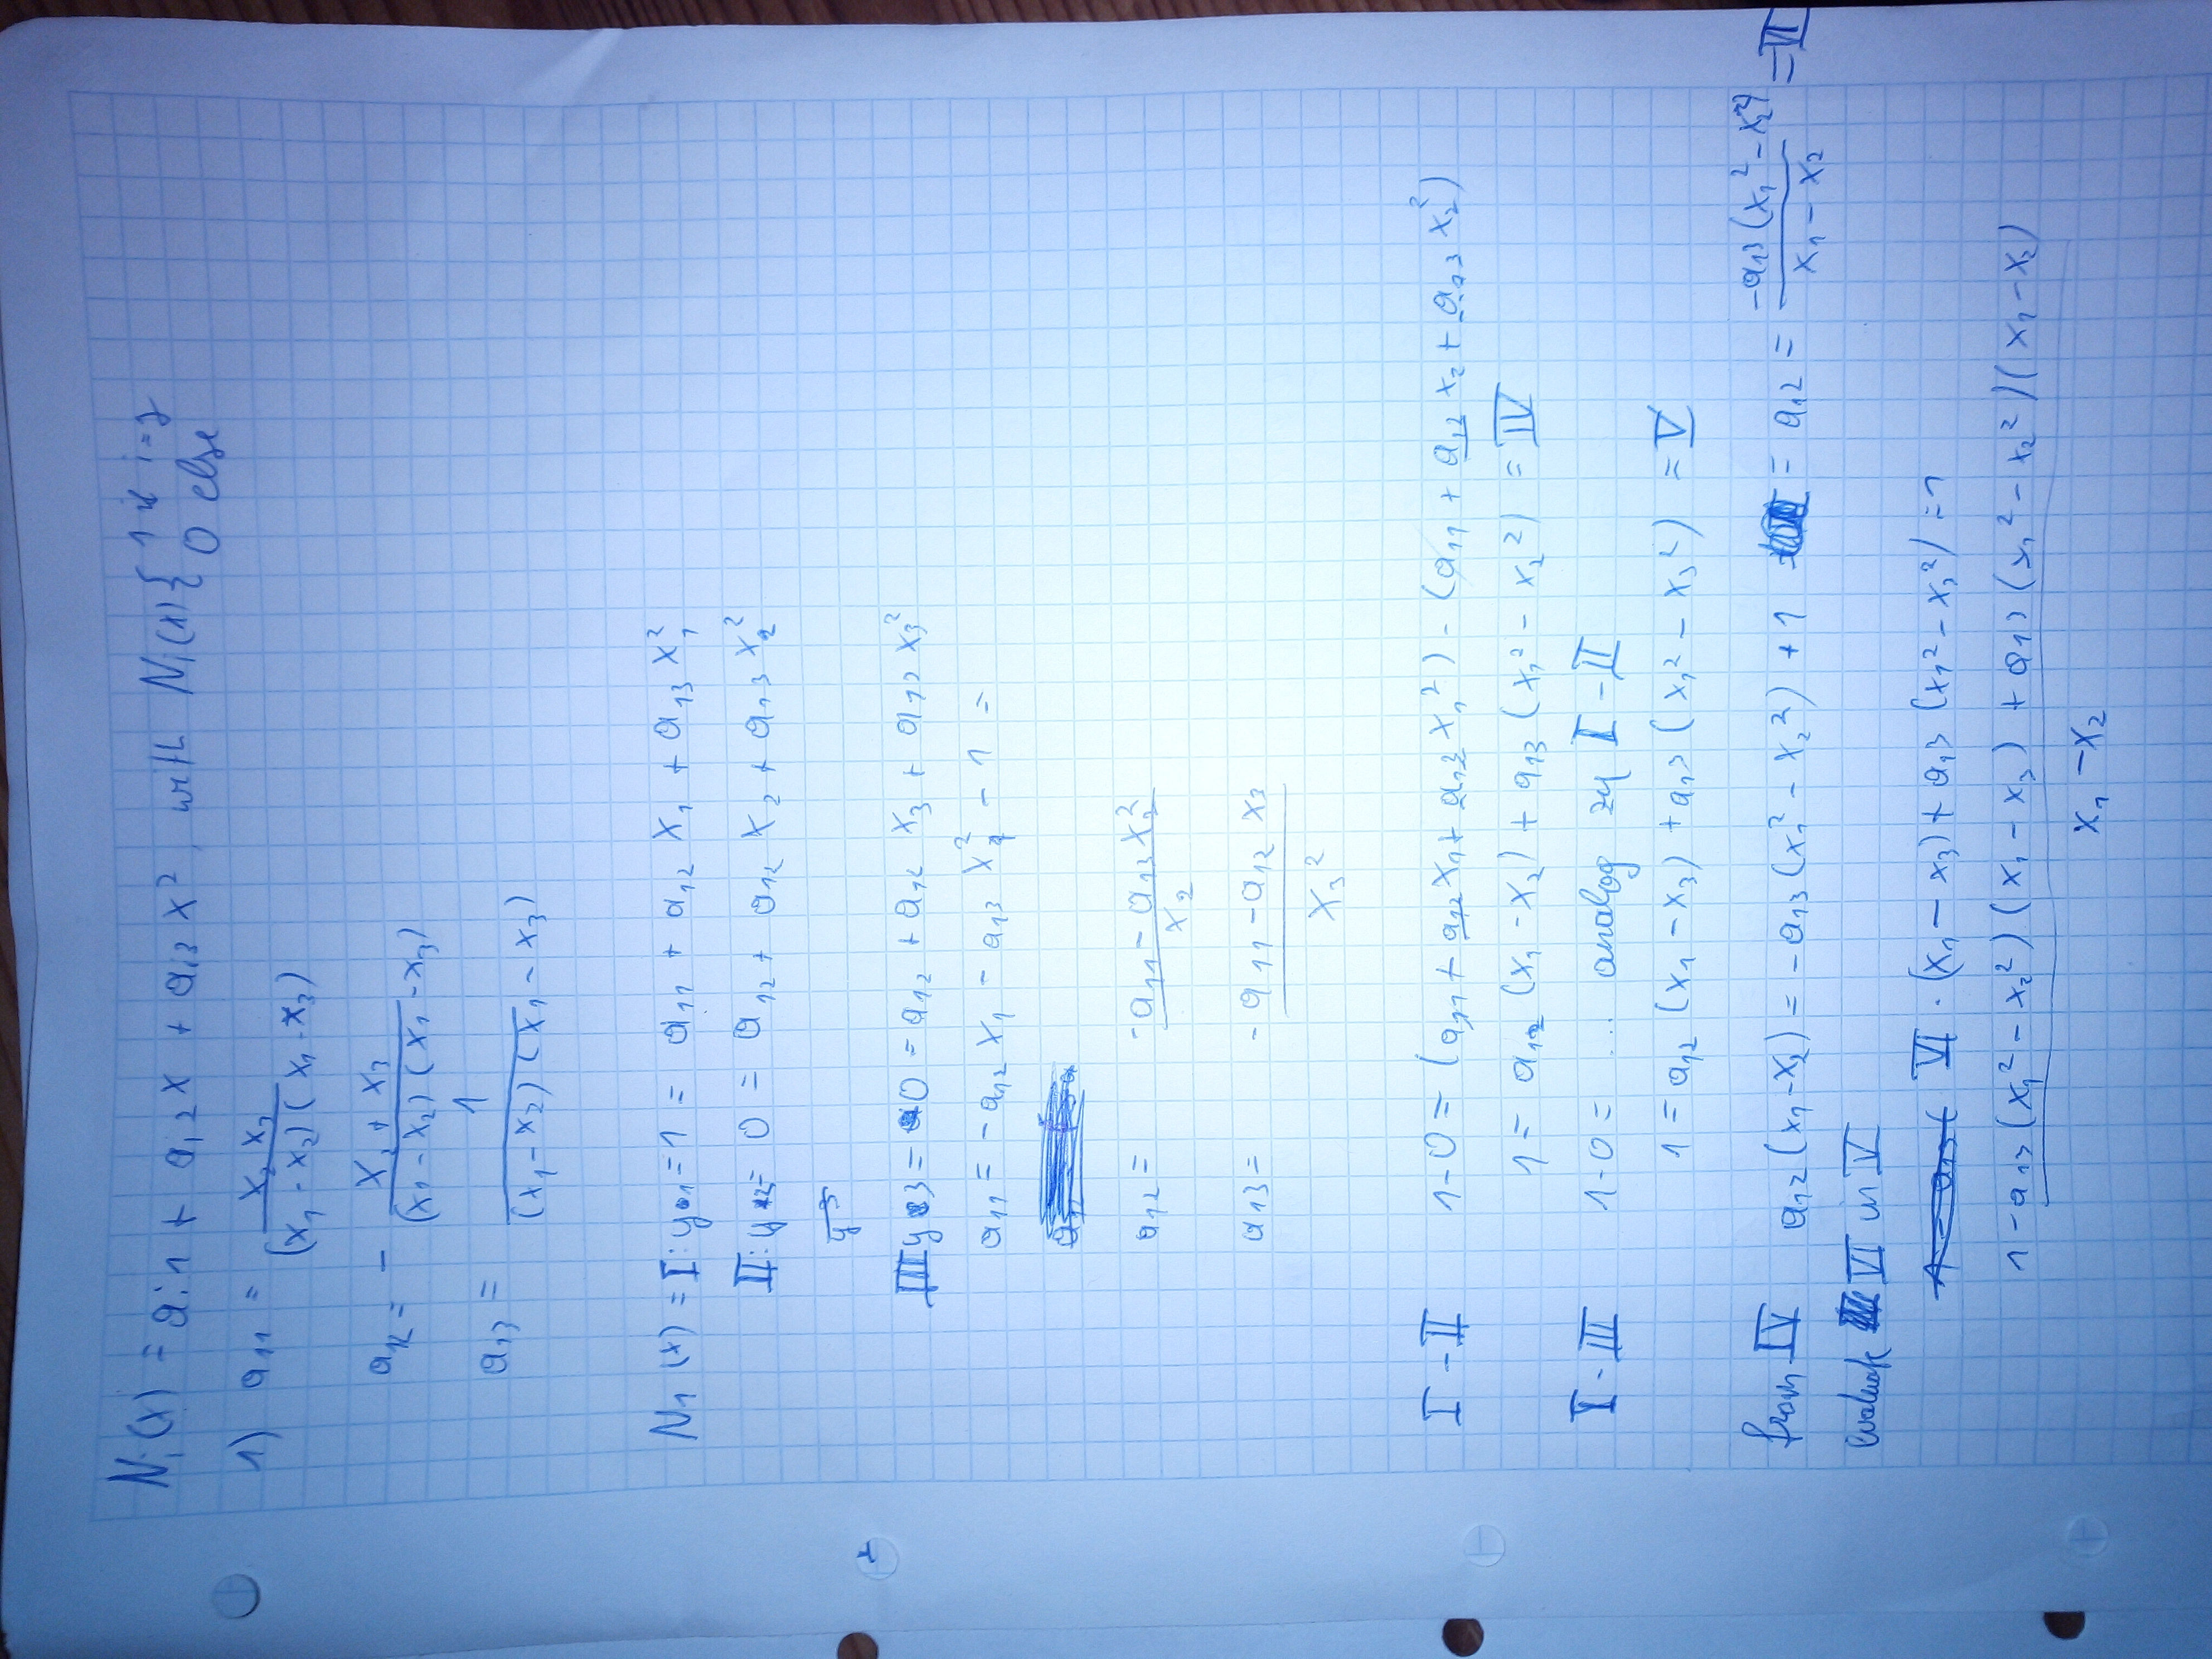 Nᵢ(x) = aᵢ₁ + aᵢ₂x + aᵢ₃x², with Nᵢ(x){ 1 if i=j
0 else
1) a₁₁ = x₂ x₃ / (x₁ - x₂)(x₁ - x₃)
a₁₂ = - x₂ + x₃ / (x₁ - x₂)(x₁ - x₃)
a₁₃ = 1 / (x₁ - x₂)(x₁ - x₃)
N₁(x) = I: y₁ = 1 = a₁₁ + a₁₂ x₁ + a₁₃ x₁²
II: y₂ = 0 = a₁₂ + a₁₂ x₂ + a₁₃ x₂²
y³
III y₃ = 0 = a₁₂ + a₁₂ x₃ + a₁₃ x₃²
a₁₁ = -a₁₂ x₁ - a₁₃ x₁² - 1 =
a₁₂ = -a₁₁ - a₁₃ x₂² / x₂
a₁₃ = -a₁₁ - a₁₂ x₃ / x₃²
I - II 1-0 = (a₁₁ + a₁₂x₁ + a₁₃x₁²) - (a₁₁ + a₁₂ x₂ + a₁₃ x₂²)
1 = a₁₂ (x₁ - x₂) + a₁₃ (x₁² - x₂²) = IV
I - III 1-0 = ... analog zu I - II
1 = a₁₂ (x₁ - x₃) + a₁₃ (x₁² - x₃²) = V
from IV a₁₂ (x₁ - x₂) = -a₁₃ (x₁² - x₂²) + 1 = a₁₂ = -a₁₃ (x₁² - x₂²) / x₁ - x₂ = VI
evaluate VI in V
VI · (x₁ - x₃) + a₁₃ (x₁² - x₃²) = 1
1 - a₁₃ (x₁² - x₂²)(x₁ - x₃) + a₁₃ (x₁² - x₂²)(x₁ - x₂) / x₁ - x₂